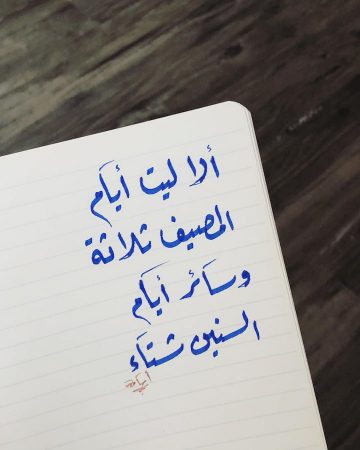 ألا ليت أيام
المصيف ثلاثة
وسائر أيام
السنين شتاء